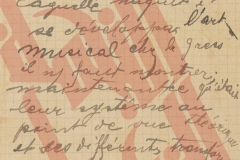 laquelle naquit
se développa l'art
musical chez les Grecs
il y faut montrer
maintenant ce qu'était
leur système au
point de vue théorique
et ses différents transfor